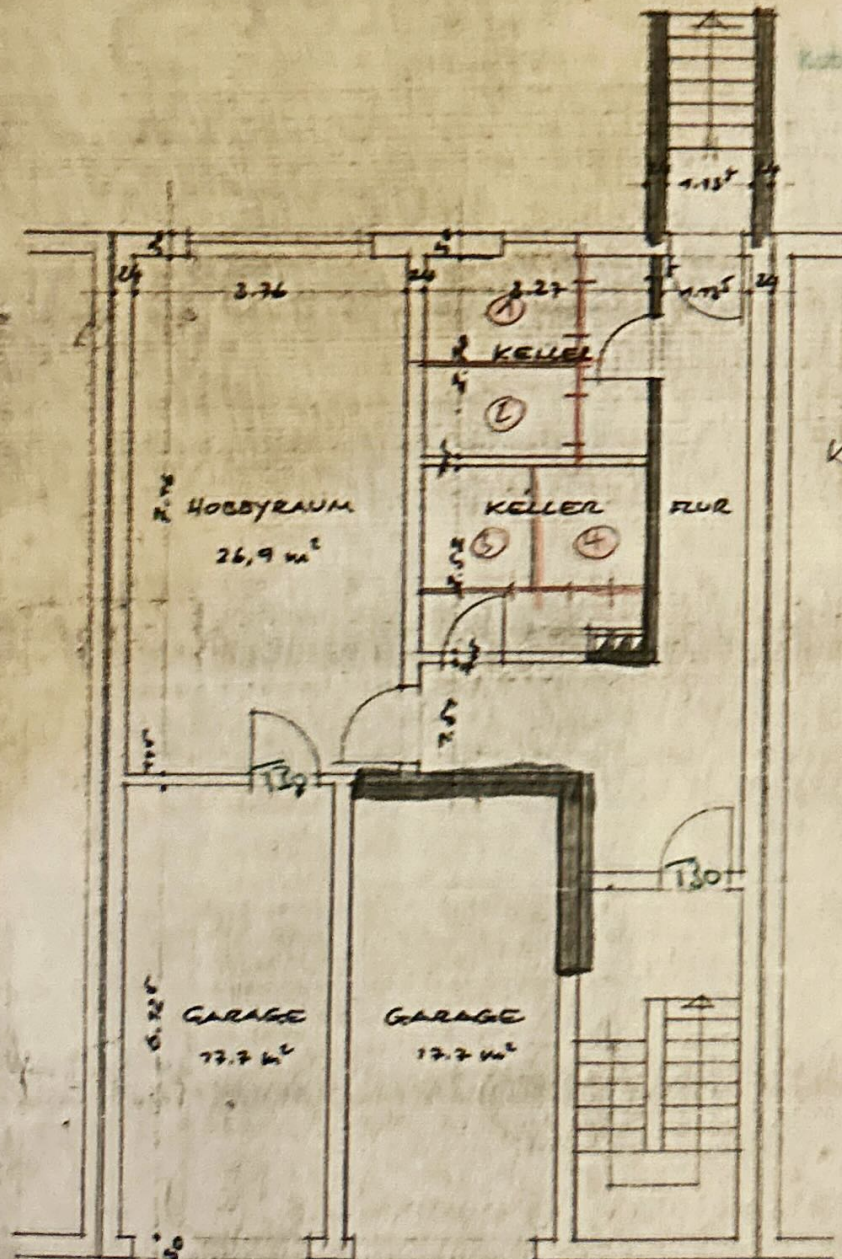 1.13⁵
24
24
3.76
24
3.27
1.13⁵
24
1
KELLER
2
HOBBYRAUM
26,9 m²
KELLER
FLUR
3
4
T30
T30
GARAGE
17.7 m²
GARAGE
17.7 m²